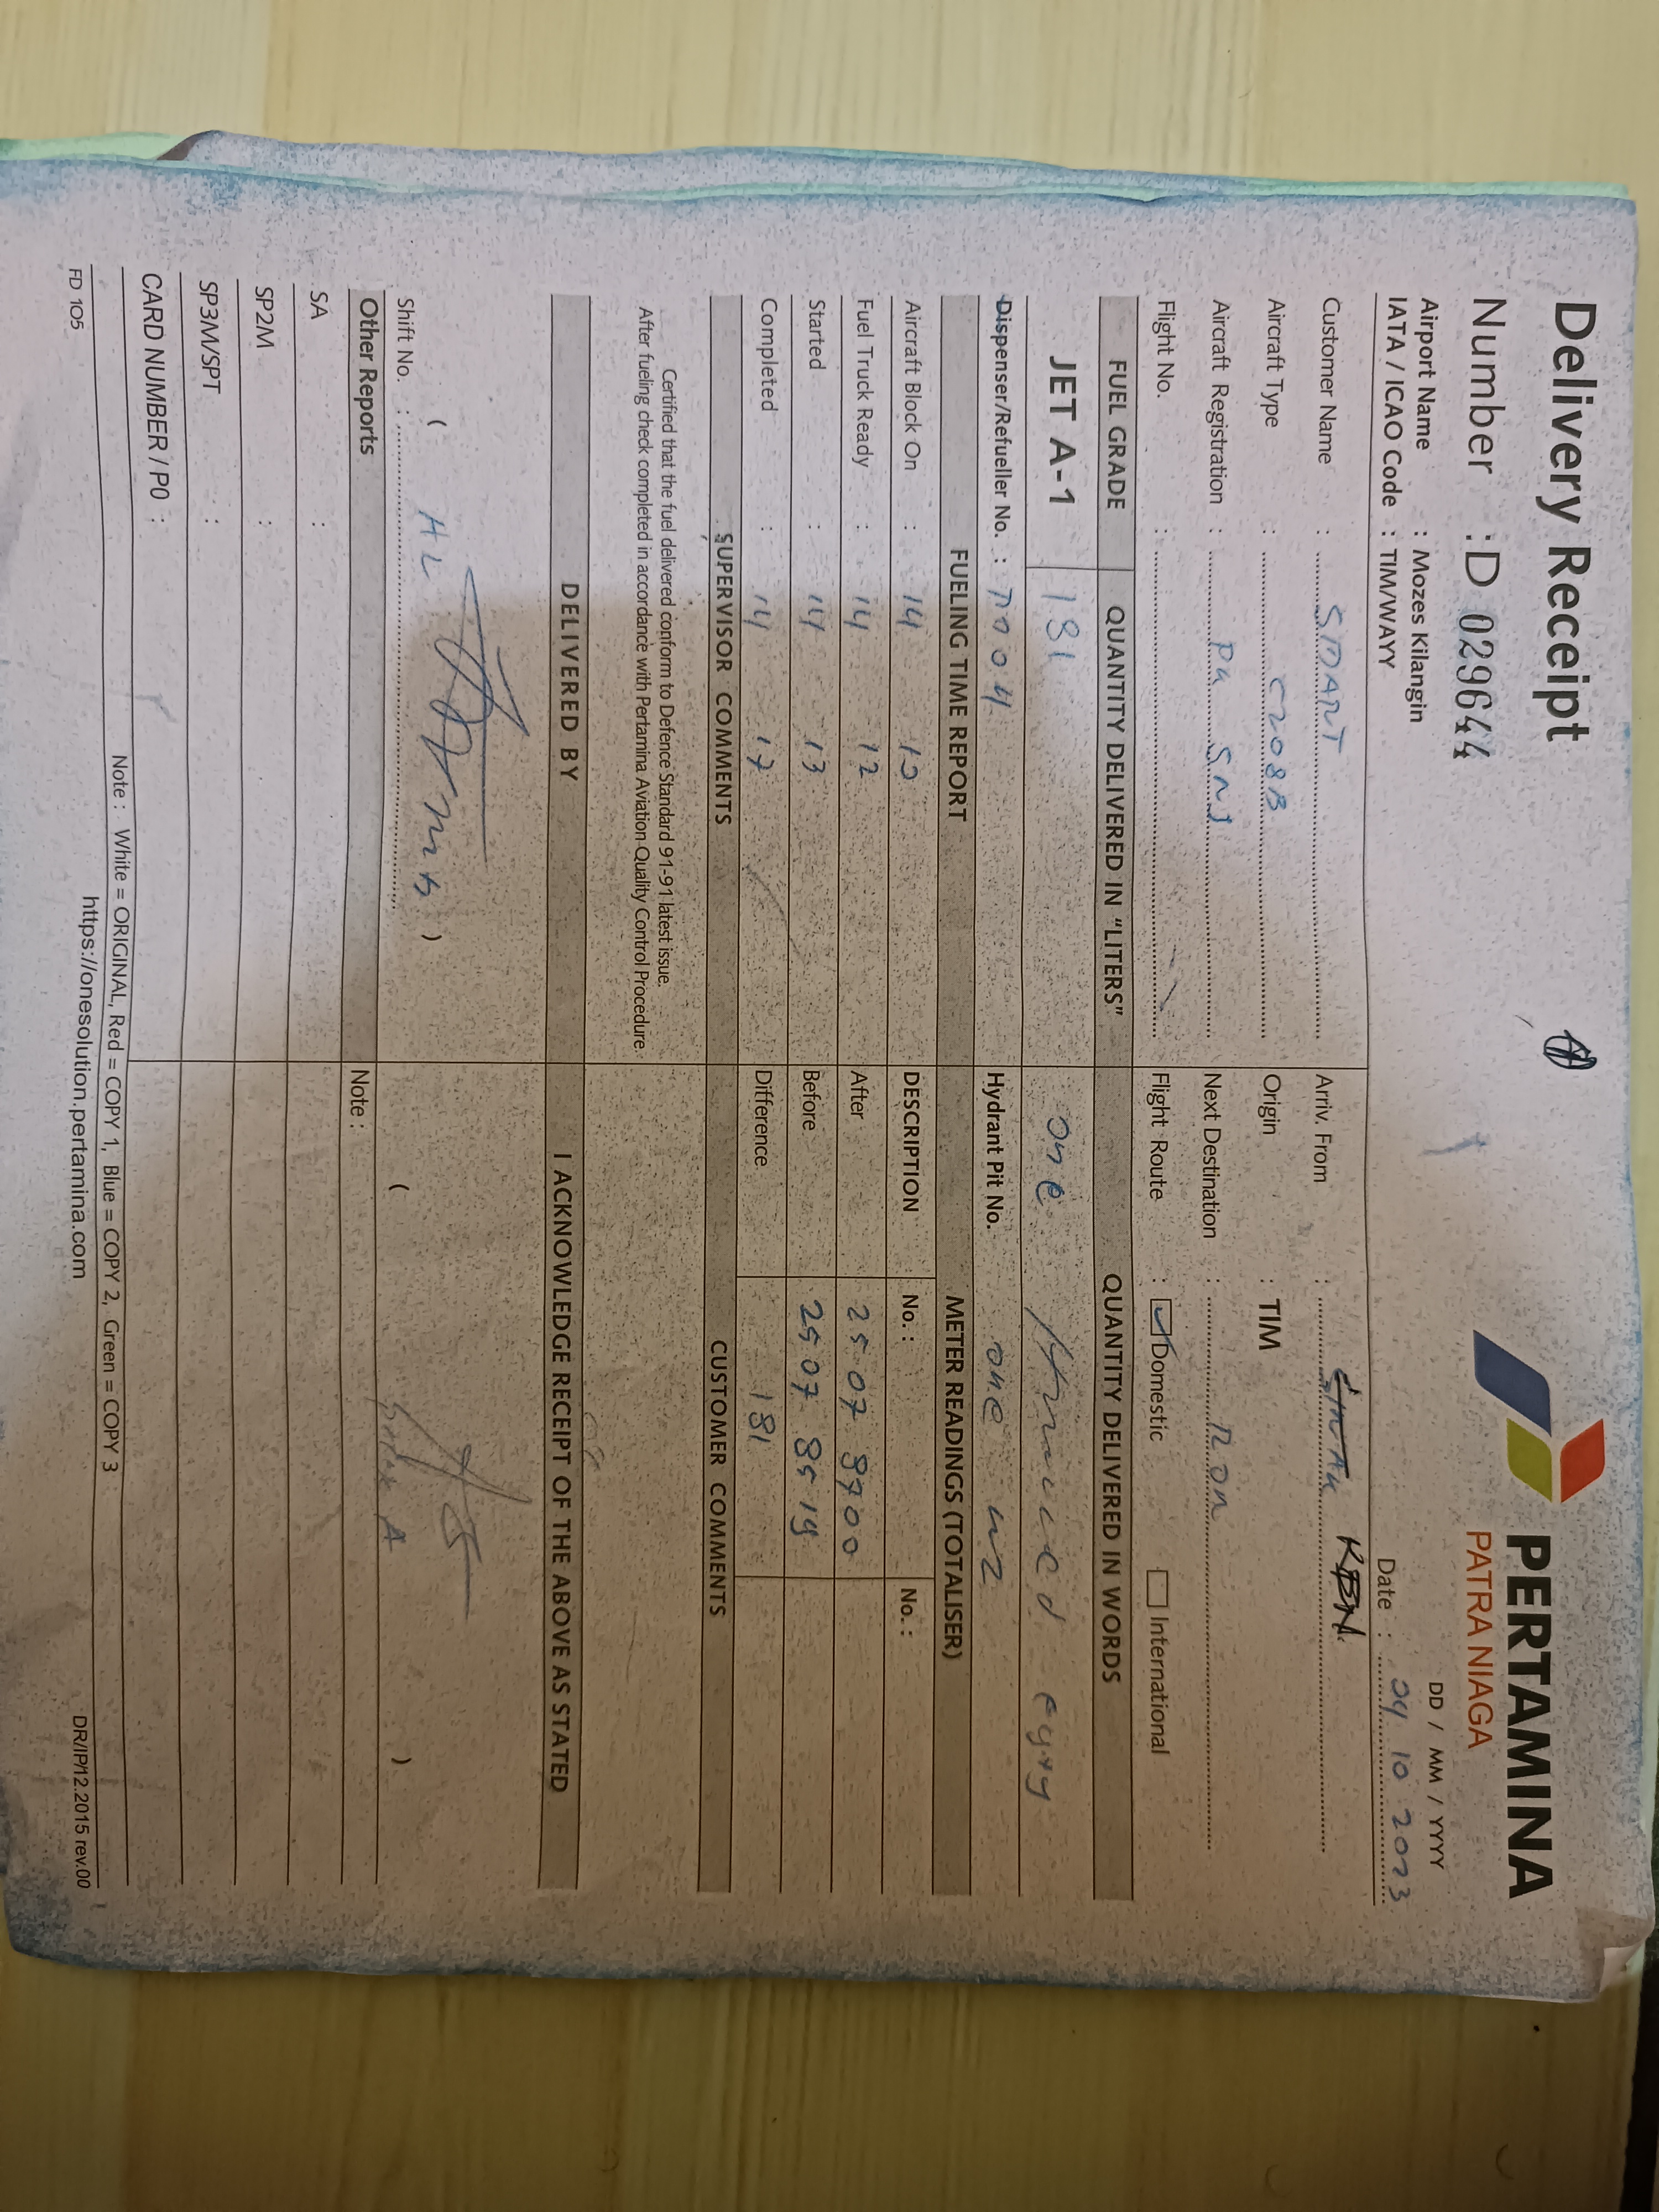 Delivery Receipt
PERTAMINA
PATRA NIAGA
Number : D 029644
DD / MM / YYYY
Airport Name : Mozes Kilangin
IATA / ICAO Code : TIM/WAYY
Date : 24 10 2023
Customer Name : SMART
Arriv. From :
Aircraft Type : C208B
Origin : TIM
Aircraft Registration : PK SNJ
Next Destination :
Flight No. :
Flight Route : Domestic International
FUEL GRADE QUANTITY DELIVERED IN "LITERS" QUANTITY DELIVERED IN WORDS
JET A-1 181 one
Dispenser/Refueller No. :
Hydrant Pit No. one
FUELING TIME REPORT METER READINGS (TOTALISER)
Aircraft Block On : 14 10
DESCRIPTION No. : No. :
Fuel Truck Ready : 14 12
After 2507 8700
Started : 14 13
Before 2507 8519
Completed : 14 17
Difference 181
SUPERVISOR COMMENTS CUSTOMER COMMENTS
Certified that the fuel delivered conform to Defence Standard 91-91 latest issue.
After fueling check completed in accordance with Pertamina Aviation Quality Control Procedure.
DELIVERED BY I ACKNOWLEDGE RECEIPT OF THE ABOVE AS STATED
( ) ( )
Shift No. :
Other Reports Note :
SA :
SP2M :
SP3M/SPT :
CARD NUMBER / PO :
Note : White = ORIGINAL, Red = COPY 1, Blue = COPY 2, Green = COPY 3
https://onesolution.pertamina.com
FD 105
DR/IP/12.2015 rev.00